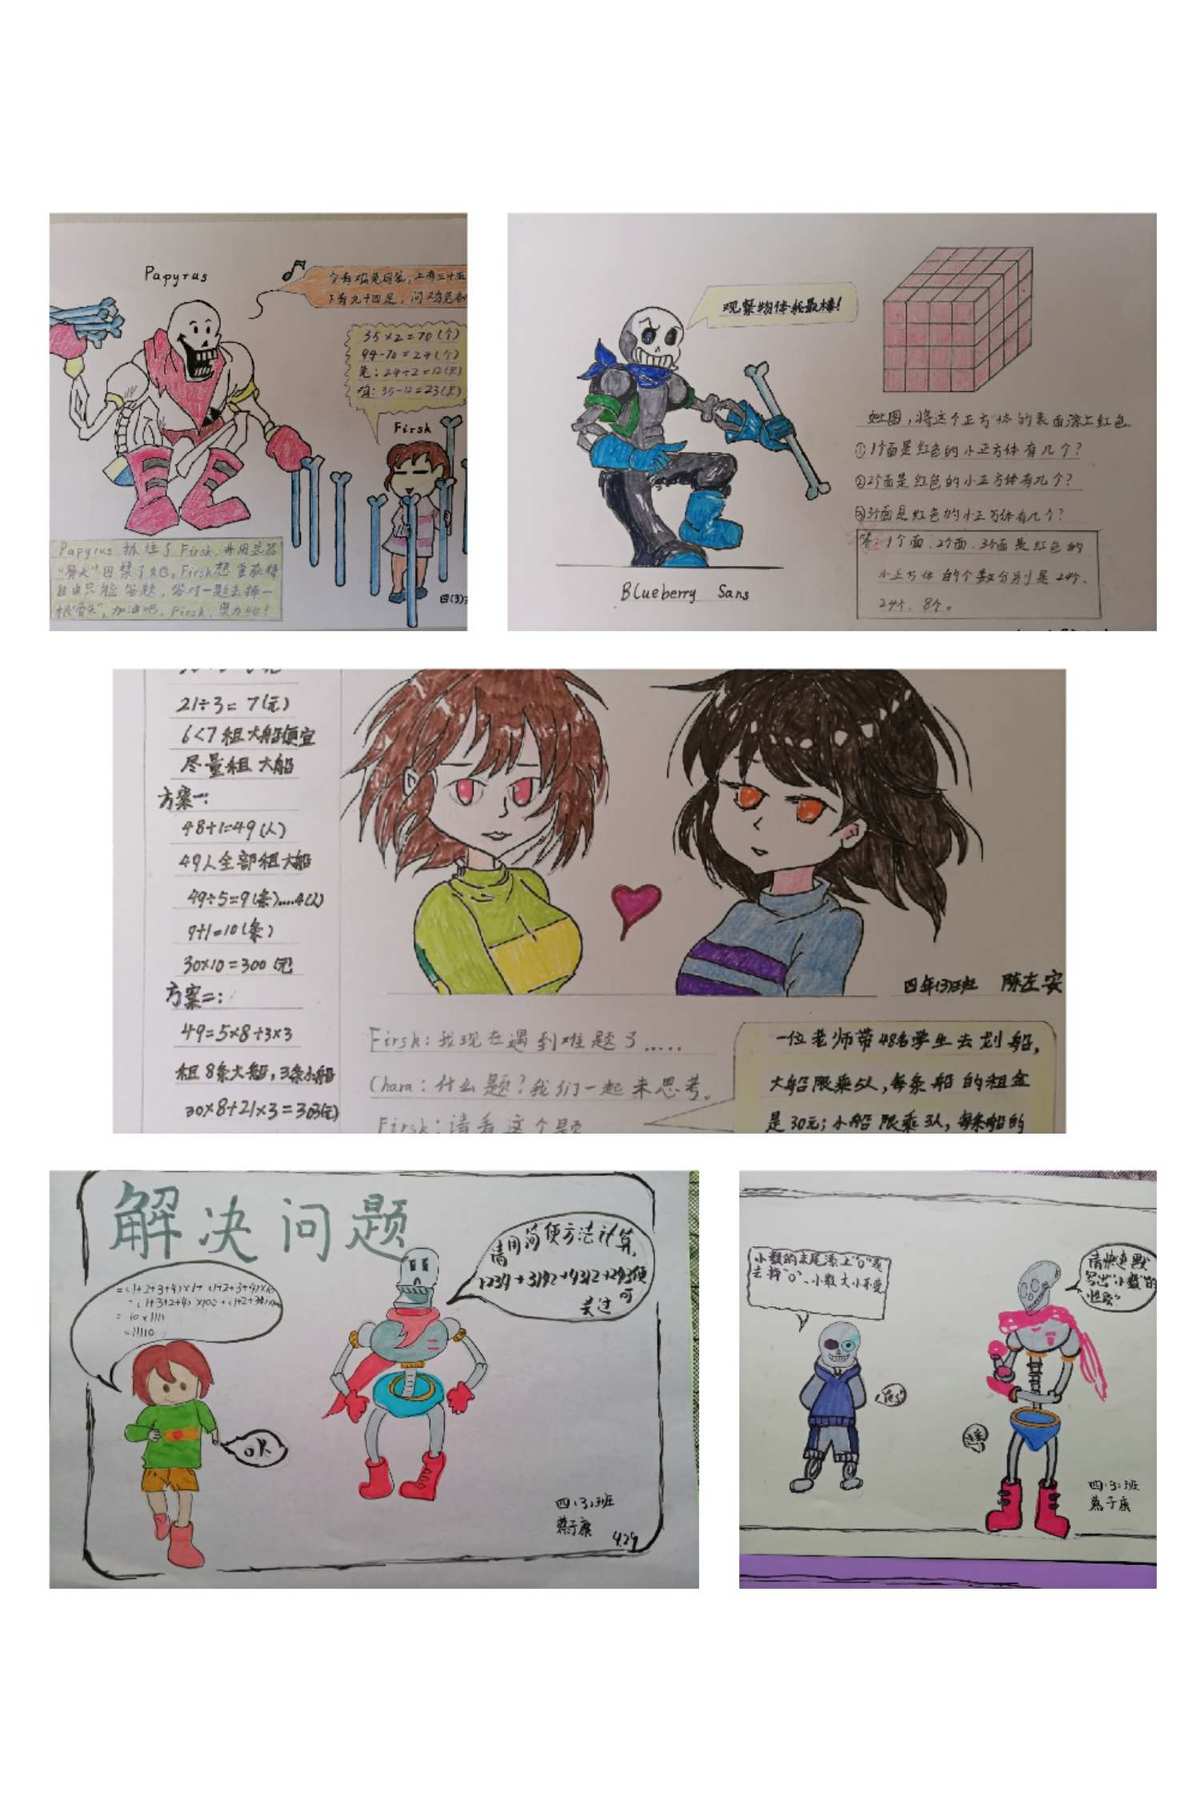 Papyrus
今有鸡兔同笼，上有三十五
下有九十四足，问鸡兔各
35×2=70(个)
94-70=24(个)
兔：24÷2=12(只)
鸡：35-12=23(只)
Firsk
Papyrus 抓住了 Firsk，并用武器
“骨头”囚禁了她。Firsk想重获得
自由只能答题，答对一题去掉一
根“骨头”，加油吧，Firsk，努力吧！
四(3)
观察物体我最棒！
Blueberry Sans
如图，将这个正方体的表面涂上红色
①1个面是红色的小正方体有几个？
②2个面是红色的小正方体有几个？
③3个面是红色的小正方体有几个？
答：1个面、2个面、3个面是红色的
小正方体的个数分别是24个、
24个、8个。
21÷3=7(元)
6<7 租大船便宜
尽量租大船
方案一：
48+1=49(人)
49人全部租大船
49÷5=9(条)……4(人)
9+1=10(条)
30×10=300(元)
方案二：
49=5×8+3×3
租8条大船，3条小船
30×8+21×3=303(元)
四年(3)班 陈左安
Firsk：我现在遇到难题了……
Chara：什么题？我们一起来思考。
Firsk：请看这个题
一位老师带48名学生去划船，
大船限乘5人，每条船的租金
是30元；小船限乘3人，每条船的
解决问题
请用简便方法计算，
1234+3142+4312+2413便
可
去过
=(1+2+3+4)×1+(1+2+3+4)×10
+(1+3+2+4)×100+(1+2+3+4)
=10×1111
=11110
OK
四(3)班
燕子康
4.29
小数的末尾添上“0”或
去掉“0”，小数大小不变
请快速默
写出“小数”的
性质
四(3)班
燕子康